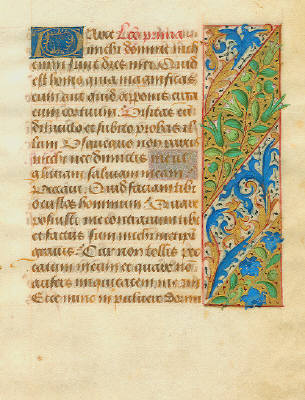 Parce Lectio prima
michi domine nich
enim sunt dies mei. Quid
est homo quia magnificas
eum aut quid apponis erga
eum cor tuum. Visitas eum
diluculo et subito probas il
lum. Usquequo non parcis
michi nec dimittis me ut
glutiam salivam meam
Peccavi. Quid faciam tibi
o custos hominum. quare
posuisti me contrarium tibi
et factus sum michimetipsi
gravis. Cur non tollis pec
catum meum et quare non
aufers iniquitatem meam
Ecce nunc in pulvere dormi